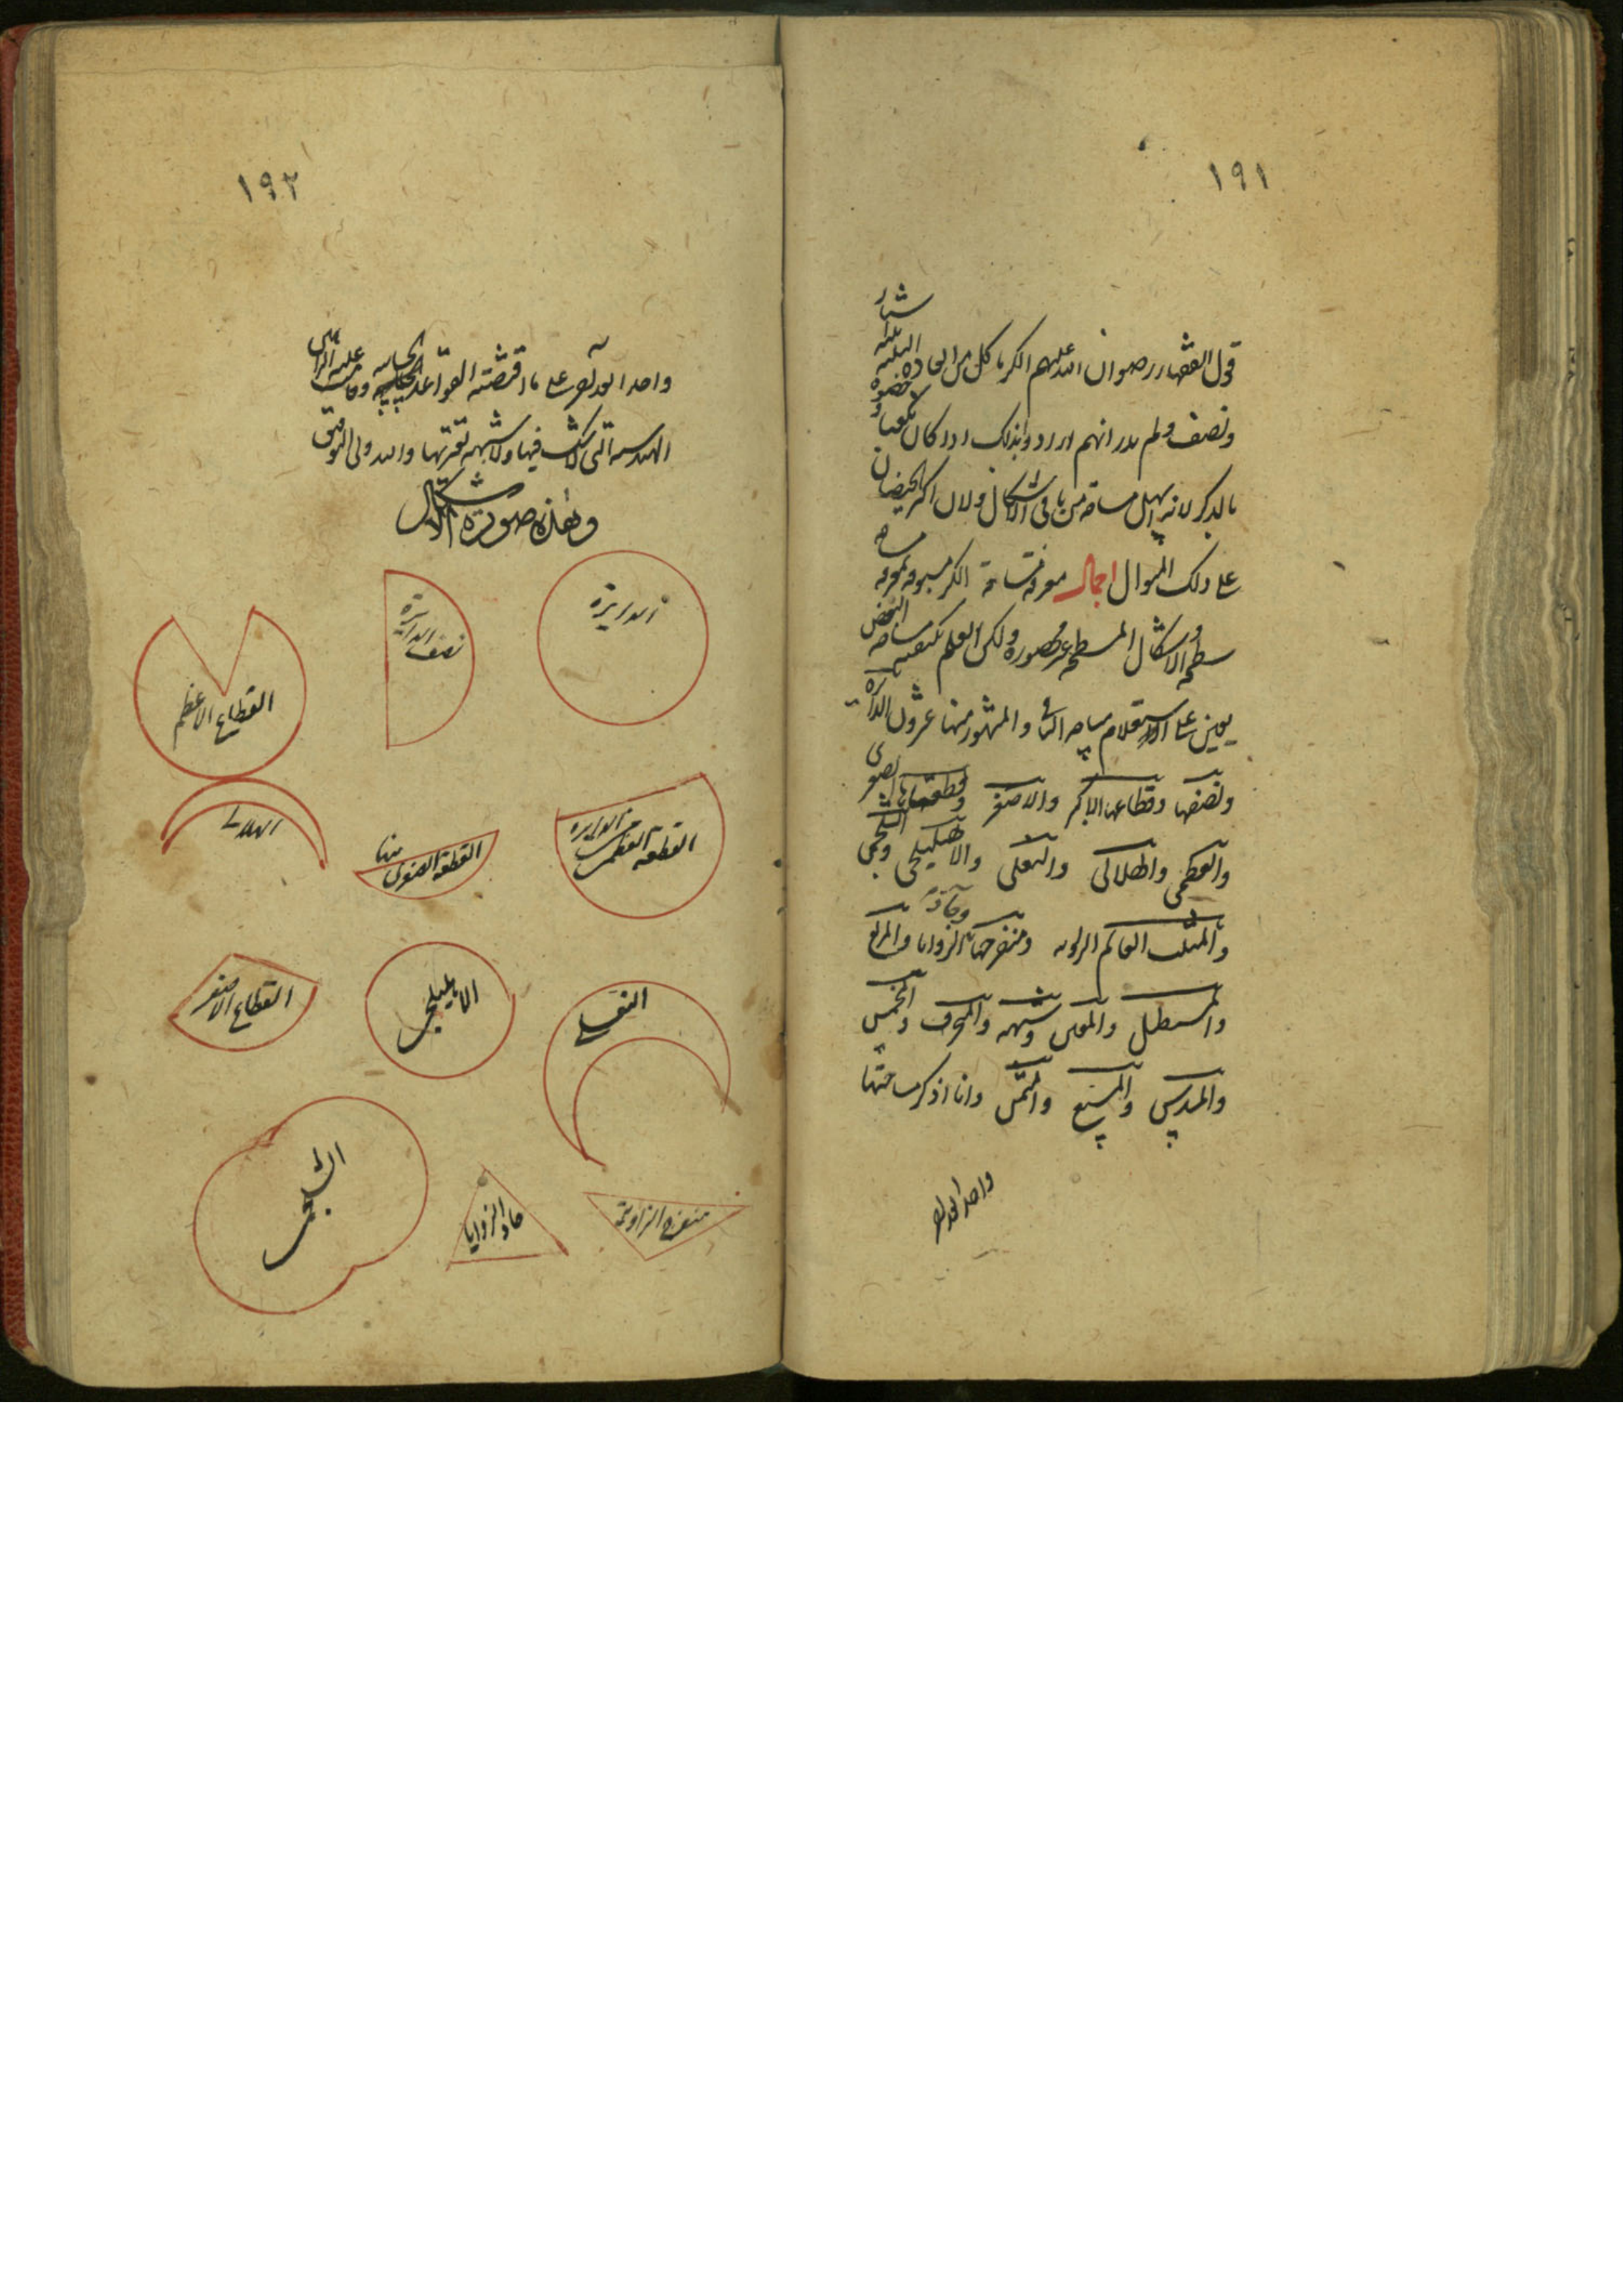 ١٩١
قول الفقهاء رضوان الله عليهم الكر ما كل من ابعاده الثلثة ثلثة اشبار
ونصف ولم انهم بذلك كان مكعبا
بالذكر لانه اسهل مساحة من باقي الاشكال ولان اكثر الحيضان
على ذلك المنوال اجمال معرفة مساحة الكر مسبوقة بمعرفة مساحة
سطحه والاشكال المسطحة غير محصورة ولكن العلم بكيفية مساحة البعض
يعين على استعلام مساحة الباقي والمشهور منها عشرون الدائرة
ونصفها وقطاعها الاكبر والاصغر وقطعتاها الصغرى
والعظمى والهلالي والنعلي والاهليلجي والشلجمي
والمثلث القائم الزاوية ومنفرجها وحاد الزوايا والمربع
والمستطيل والمعين وشبهه والمنحرف والمخمس
والمسدس والمسبع والمثمن وانا اذكر مساحتها
واحدا بعد
١٩٢
واحدا بعد آخر على ما اقتضته القواعد الحسابية وقامت عليه البراهين
الهندسية التي لا شك فيها ولا شبهة تعتريها والله ولي التوفيق
وهذه صورة الاشكال
الدايرة
نصف الدايرة
القطاع الاعظم
القطعة العظمى من الدايرة
القطعة الصغرى منها
الهلالي
النعلي
الاهليلجي
القطاع الاصغر
منفرج الزاوية
حاد الزوايا
الشلجمي